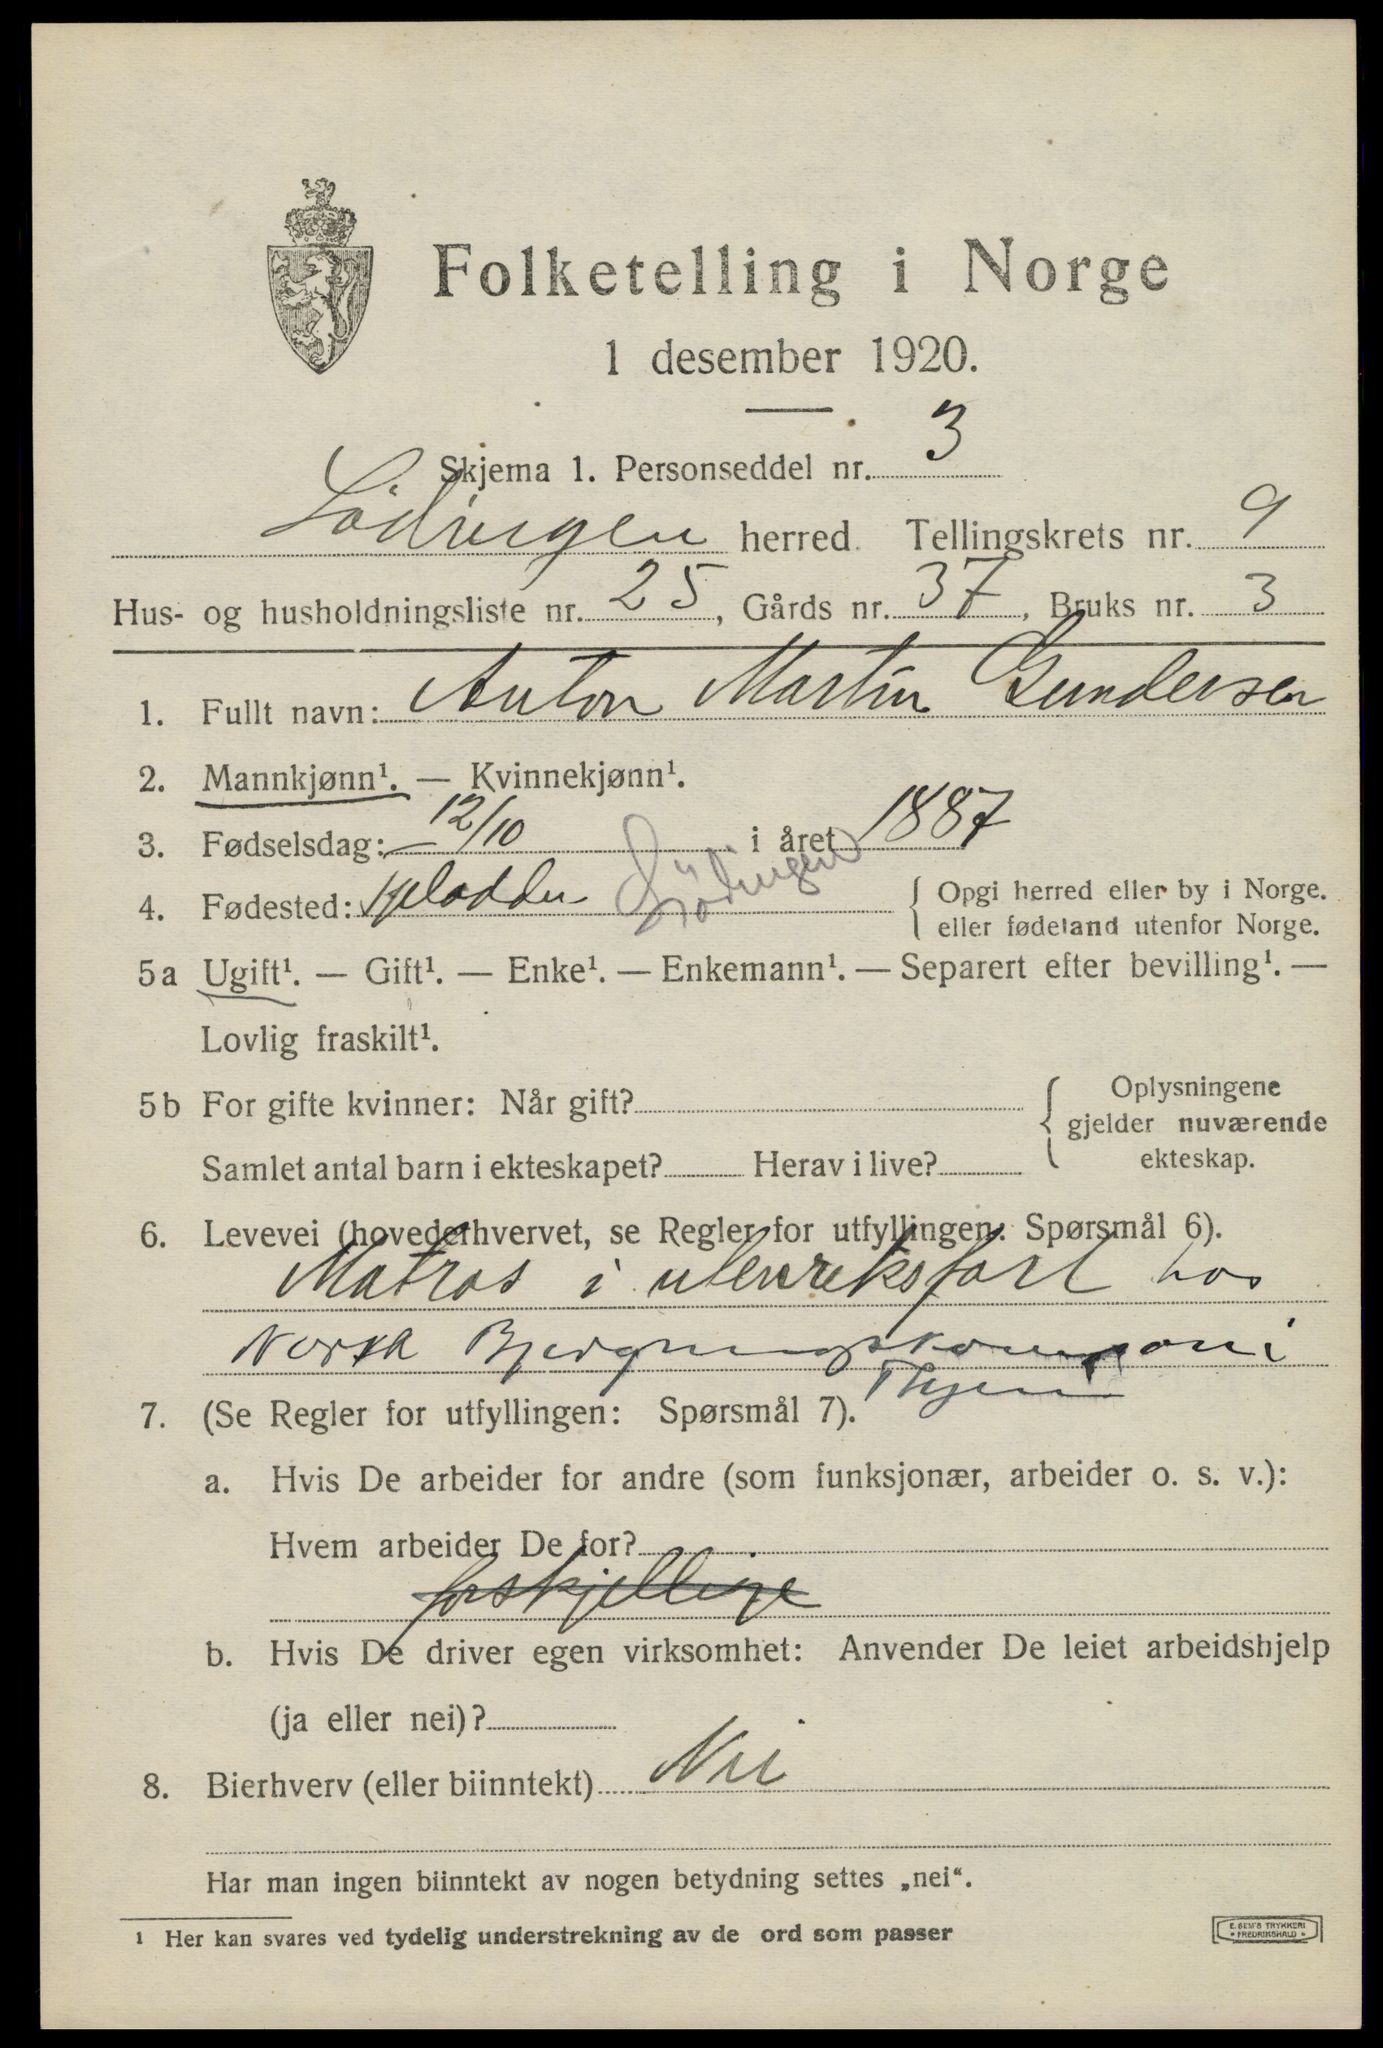 Folketelling i Norge
1 desember 1920.
Skjema 1. Personseddel nr. 3
Lödingen herred. Tellingskrets nr. 9
Hus- og husholdningsliste nr. 25, Gårds nr. 37, Bruks nr. 3
1. Fullt navn: Anton Martin Gundersen
2. Mannkjønn¹. — Kvinnekjønn¹.
3. Fødselsdag: 12/10 i året 1887
4. Fødested: Lödingen { Opgi herred eller by i Norge.
eller fødeland utenfor Norge.
5a Ugift¹. — Gift¹. — Enke¹. — Enkemann¹. — Separert efter bevilling¹. —
Lovlig fraskilt¹.
5b For gifte kvinner: Når gift? { Oplysningene
gjelder nuværende
ekteskap.
Samlet antal barn i ekteskapet? Herav i live?
6. Levevei (hovederhvervet, se Regler for utfyllingen: Spørsmål 6).
Matros i utenriksfart hos
Norsk Bjergningskompani
7. (Se Regler for utfyllingen: Spørsmål 7).
a. Hvis De arbeider for andre (som funksjonær, arbeider o. s. v.):
Hvem arbeider De for?
forskjellige
b. Hvis De driver egen virksomhet: Anvender De leiet arbeidshjelp
(ja eller nei)?
8. Bierhverv (eller biinntekt) Nei
Har man ingen biinntekt av nogen betydning settes „nei“.
¹ Her kan svares ved tydelig understrekning av de ord som passer
E. SEM'S TRYKKERI
FREDRIKSHALD